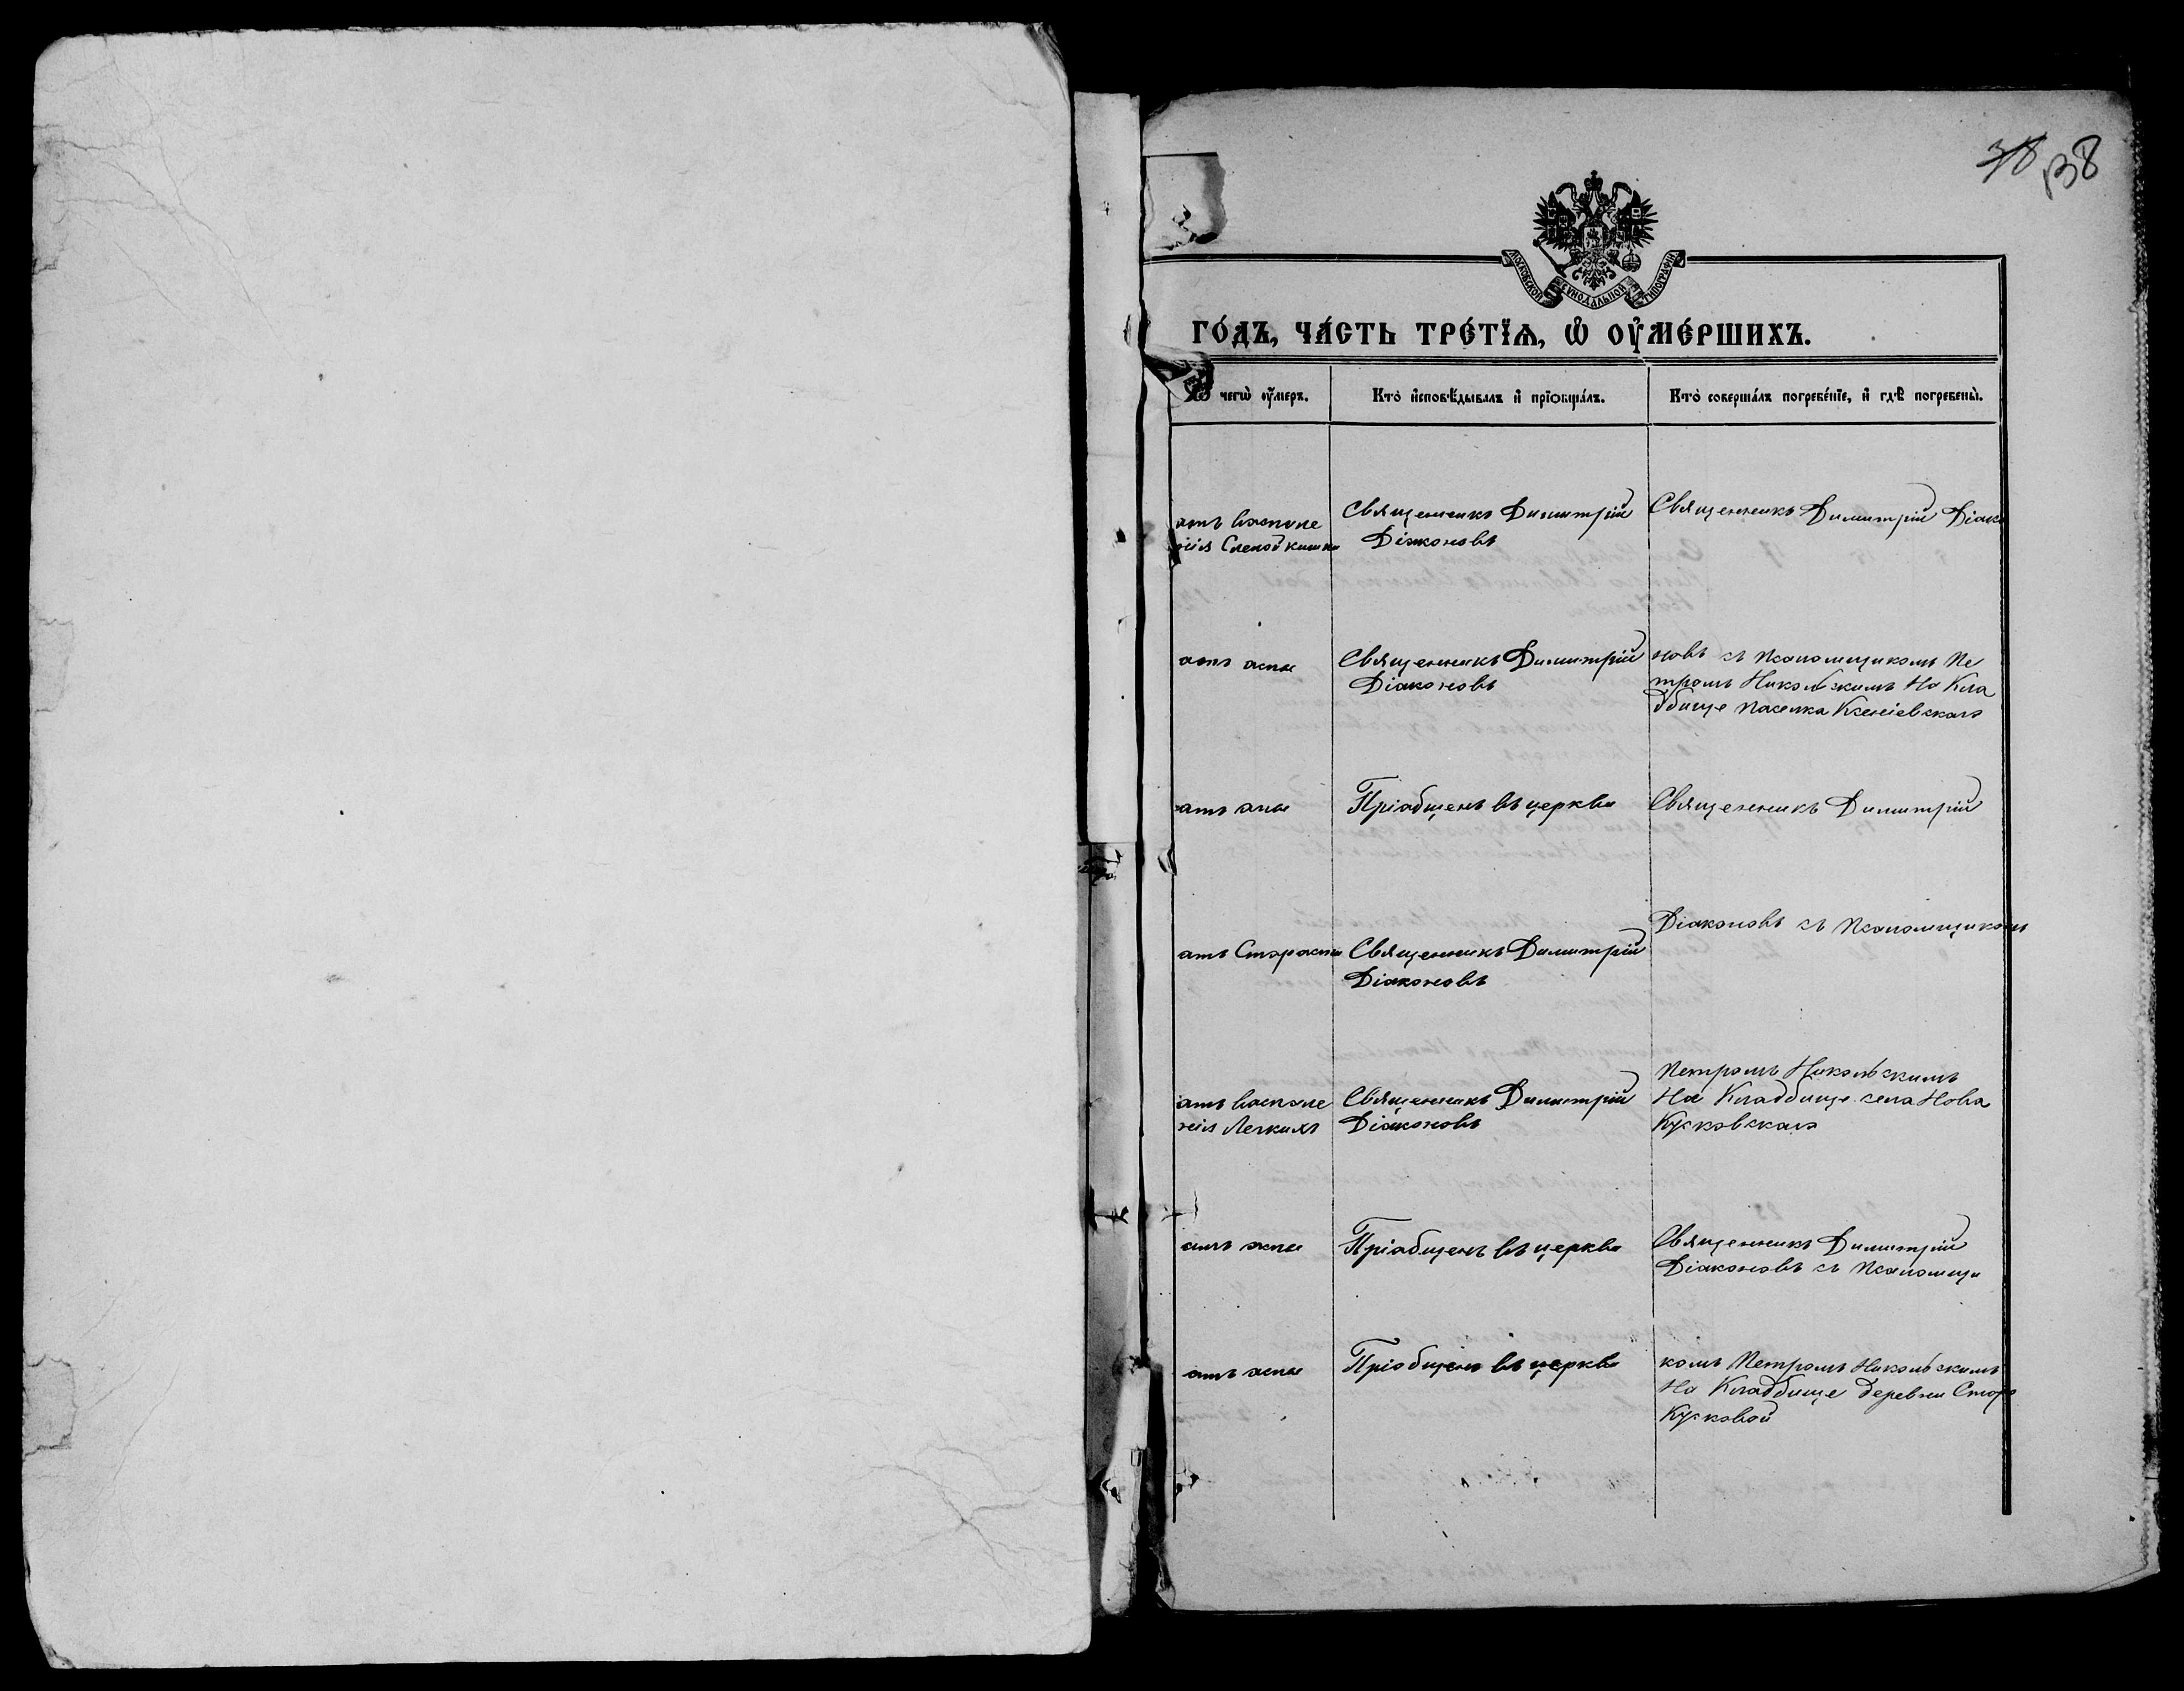 38 138
МОСКОВСКОЙ СѴНОДАЛЬНОЙ ТИПОГРАФІИ
ГО́ДЪ, ЧА́СТЬ ТРЕ́ТЇѦ, Ѡ҆ ОУ҆МЕ́РШИХЪ.
Ѿ чегѡ̀ оу҆́меръ.
Кто̀ и҆сповѣ́дывалъ и҆ прїѻбща́лъ.
Кто̀ соверша́лъ погребе́нїе, и҆ гдѣ̀ погребены̀.
отъ воспале
нія Слепой кишки
Священникъ Димитрій
Діаконовъ
Священникъ Димитрій Діако
отъ оспы
Священникъ Димитрій
Діаконовъ
новъ съ Псаломщикомъ Пе
тромъ Никольскимъ На Кла
дбище поселка Ксеніевскаго
отъ оспы
Пріобщенъ въ церкви
Священникъ Димитрій
отъ Старости
Священникъ Димитрій
Діаконовъ
Діаконовъ съ Псаломщикомъ
отъ воспале
нія Легкихъ
Священникъ Димитрій
Діаконовъ
Петромъ Никольскимъ
На Кладбище села Ново
Кусковскаго
отъ оспы
Пріобщенъ въ церкви
Священникъ Димитрій
Діаконовъ съ Псаломщи
отъ оспы
Пріобщенъ въ церкви
комъ Петромъ Никольскимъ
На Кладбище деревни Старо
Кусковой